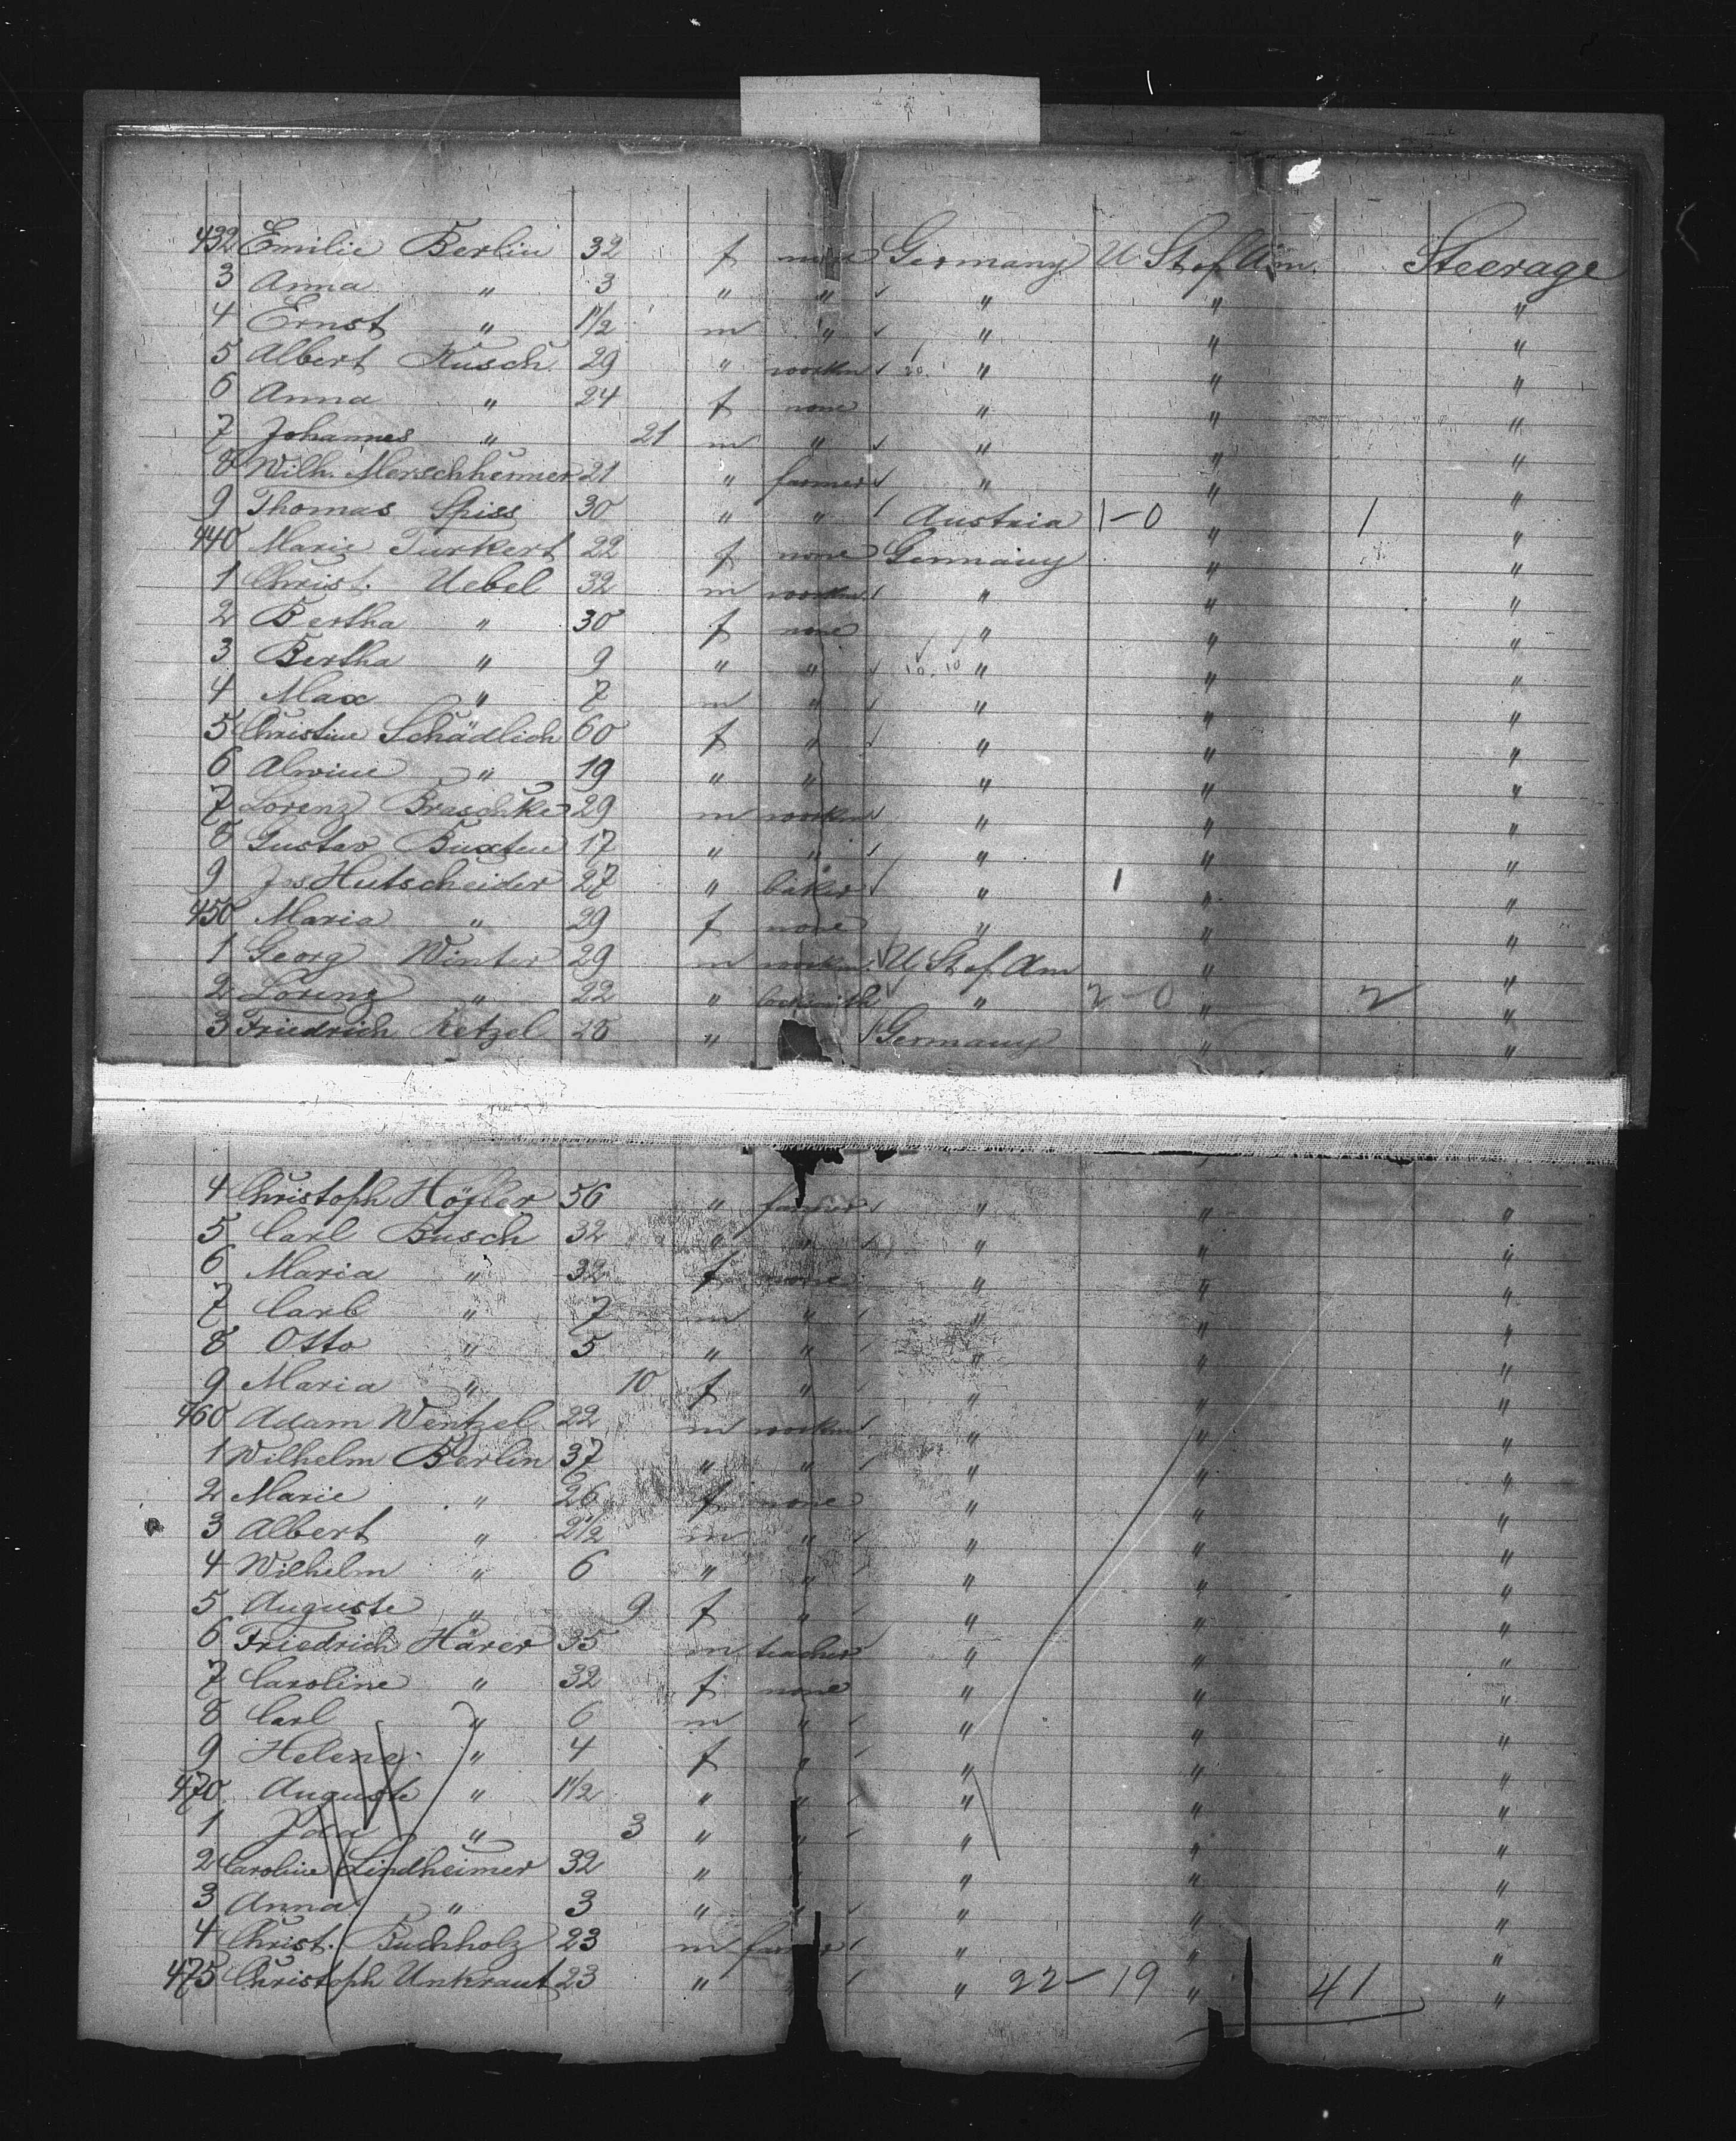 432 Emilie Berlin 32 f none Germany U St of Am. Steerage
3 Anna " 3 " " " " "
4 Ernst " 1 1/2 m " " " "
5 Albert Kusch 29 " workm " " "
6 Anna " 24 f none " " "
7 Johannes " 21 m " " " "
8 Wilh. Merschheimer 21 " farmer " " "
9 Thomas Spiss 30 " " Austria 1-0 " 1 "
440 Marie Turkert 22 f none Germany " "
1 Christ. Uebel 32 m workm " " "
2 Bertha " 30 f none " " "
3 Bertha " 9 " " 10. 10 " " "
4 Max " 7 m " " " "
5 Christine Schädlich 60 f " " " "
6 Alwine " 19 " " " " "
7 Lorenz Braschke 29 m workm " " "
8 Gustav Buxten 17 " " " " "
9 Jos Hutscheider 27 " baker " 1 " "
450 Maria " 29 f none " " "
1 Georg Winter 29 m workm U St of Am " "
2 Lorenz " 22 " locksmith " 2-0 " 2 "
3 Friedrich Ketzel 28 " Germany " "
4 Christoph Höfler 56 " farmer " " "
5 Carl Busch 32 " " " " "
6 Maria " 32 f none " " "
7 Carl " 7 m " " " "
8 Otto " 5 " " " " "
9 Maria " 10 f " " " "
460 Adam Wentzel 22 m workm " " "
1 Wilhelm Berlin 37 " " " " "
2 Marie " 26 f none " " "
3 Albert " 2 1/2 m " " " "
4 Wilhelm " 6 " " " " "
5 Auguste " 9 f " " " "
6 Friedrich Härer 35 m teacher " " "
7 Caroline " 32 f none " " "
8 Carl " 6 m " " " "
9 Helene " 4 f " " " "
470 Auguste " 1 1/2 " " " " "
1 Ida " 3 " " " " "
2 Caroline Lindheimer 32 " " " "
3 Anna " 3 " " " " "
4 Christ. Buchholz 23 m farmer " " "
475 Christoph Unkraut 23 " " " 22-19 " 41 "